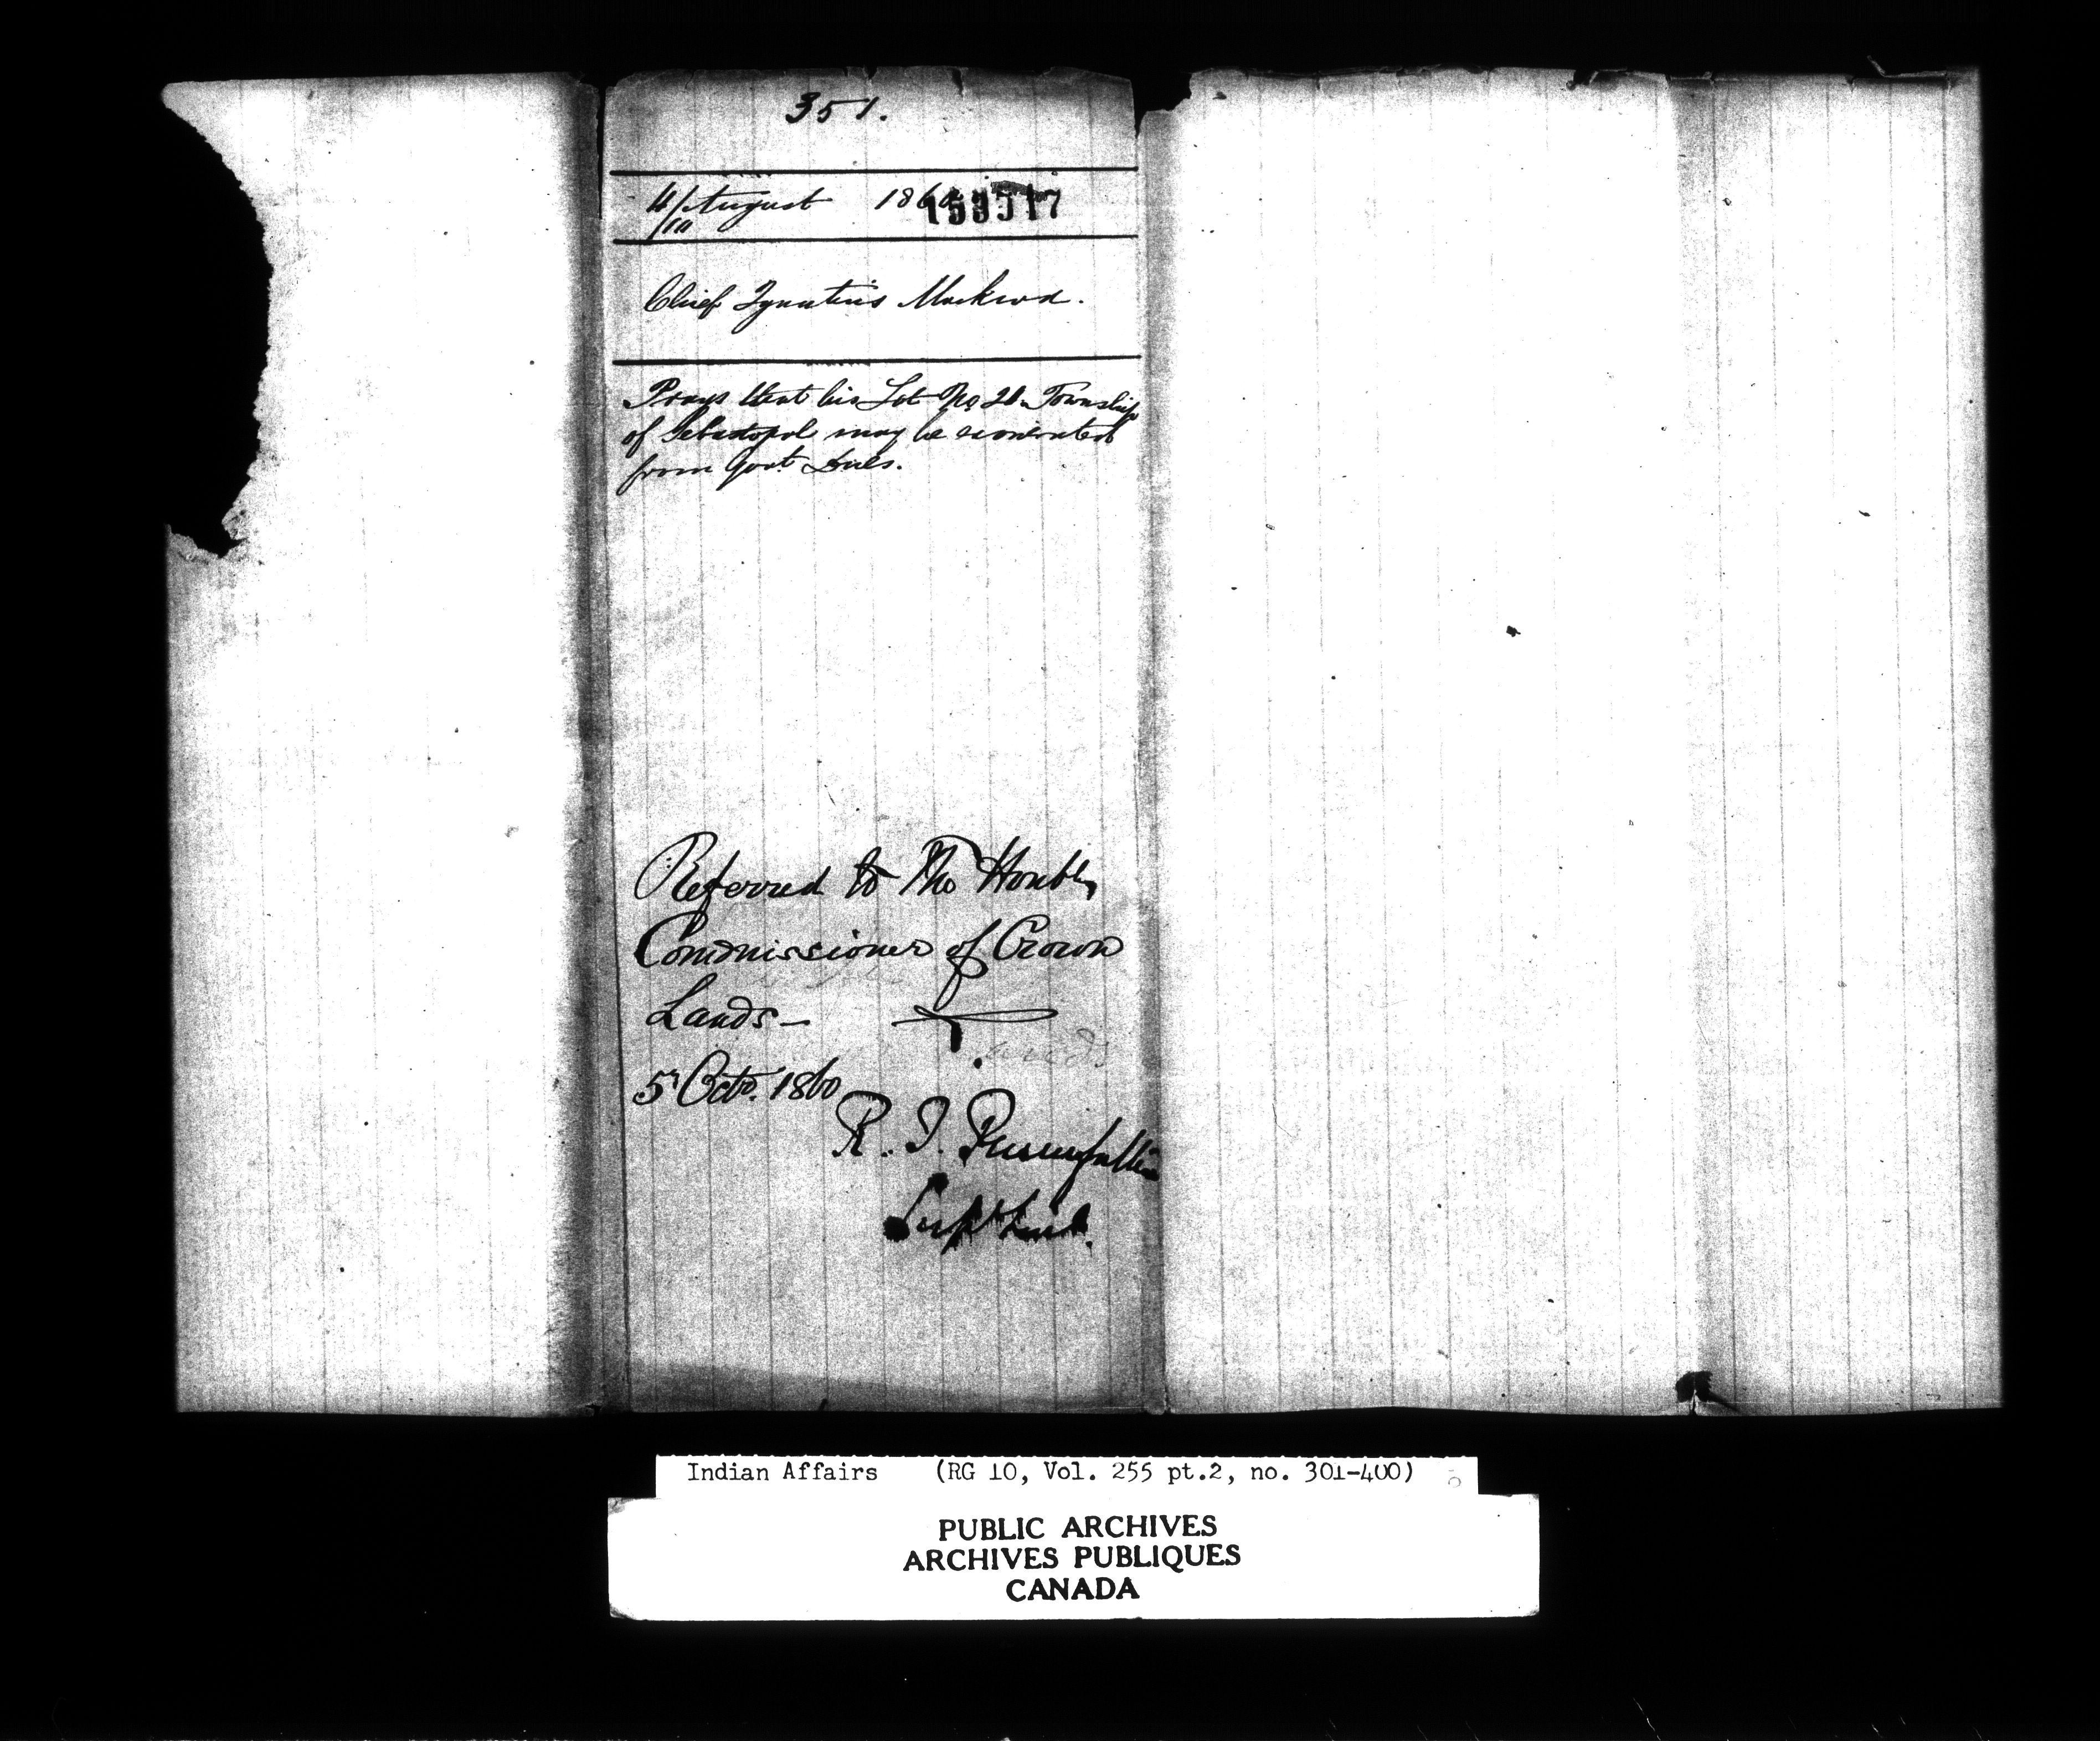 351.
4/10 August 1860
153517
Chief Ignatius Mackwa.
Prays that his Lot No 21. Township
of Sebastopol may be exonerated
from Govt Dues.
Referred to The Honble,
Commissioner of Crown
Lands —
5 Octr. 1860
R. T. Pennefather
Supt Ind.
Indian Affairs (RG 10, Vol. 255 pt.2, no. 301-400)
PUBLIC ARCHIVES
ARCHIVES PUBLIQUES
CANADA